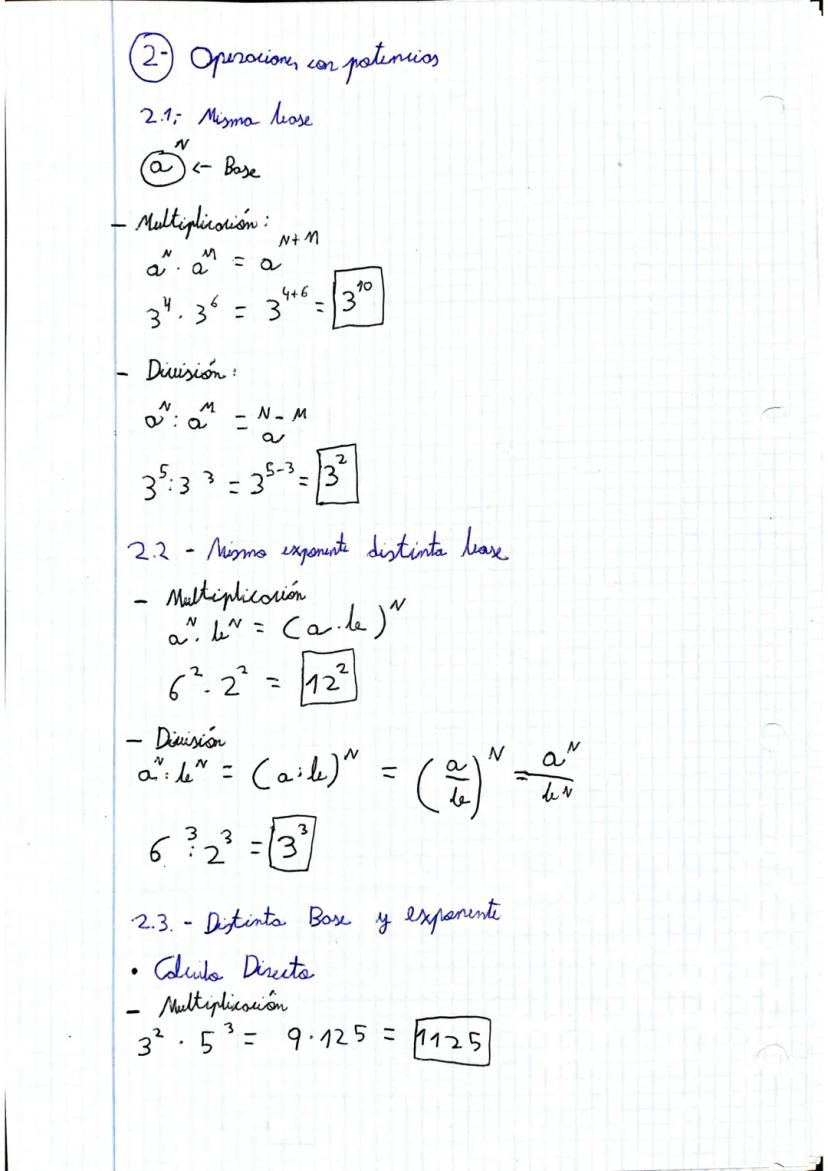 2- Operaciones con potencias
2.1,- Misma base
a^N ← Base
- Multiplicación:
a^N · a^M = a^{N+M}
3^4 · 3^6 = 3^{4+6} = 3^{10}
- División:
a^N : a^M = a^{N-M}
3^5 : 3^3 = 3^{5-3} = 3^2
2.2 - Mismo exponente distinta base
- Multiplicación
a^N · b^N = (a · b)^N
6^2 · 2^2 = 12^2
- División
a^N : b^N = (a : b)^N = (a/b)^N = a^N/b^N
6^3 : 2^3 = 3^3
2.3. - Distinta Base y exponente
• Calculo Directo
- Multiplicación
3^2 · 5^3 = 9 · 125 = 1125